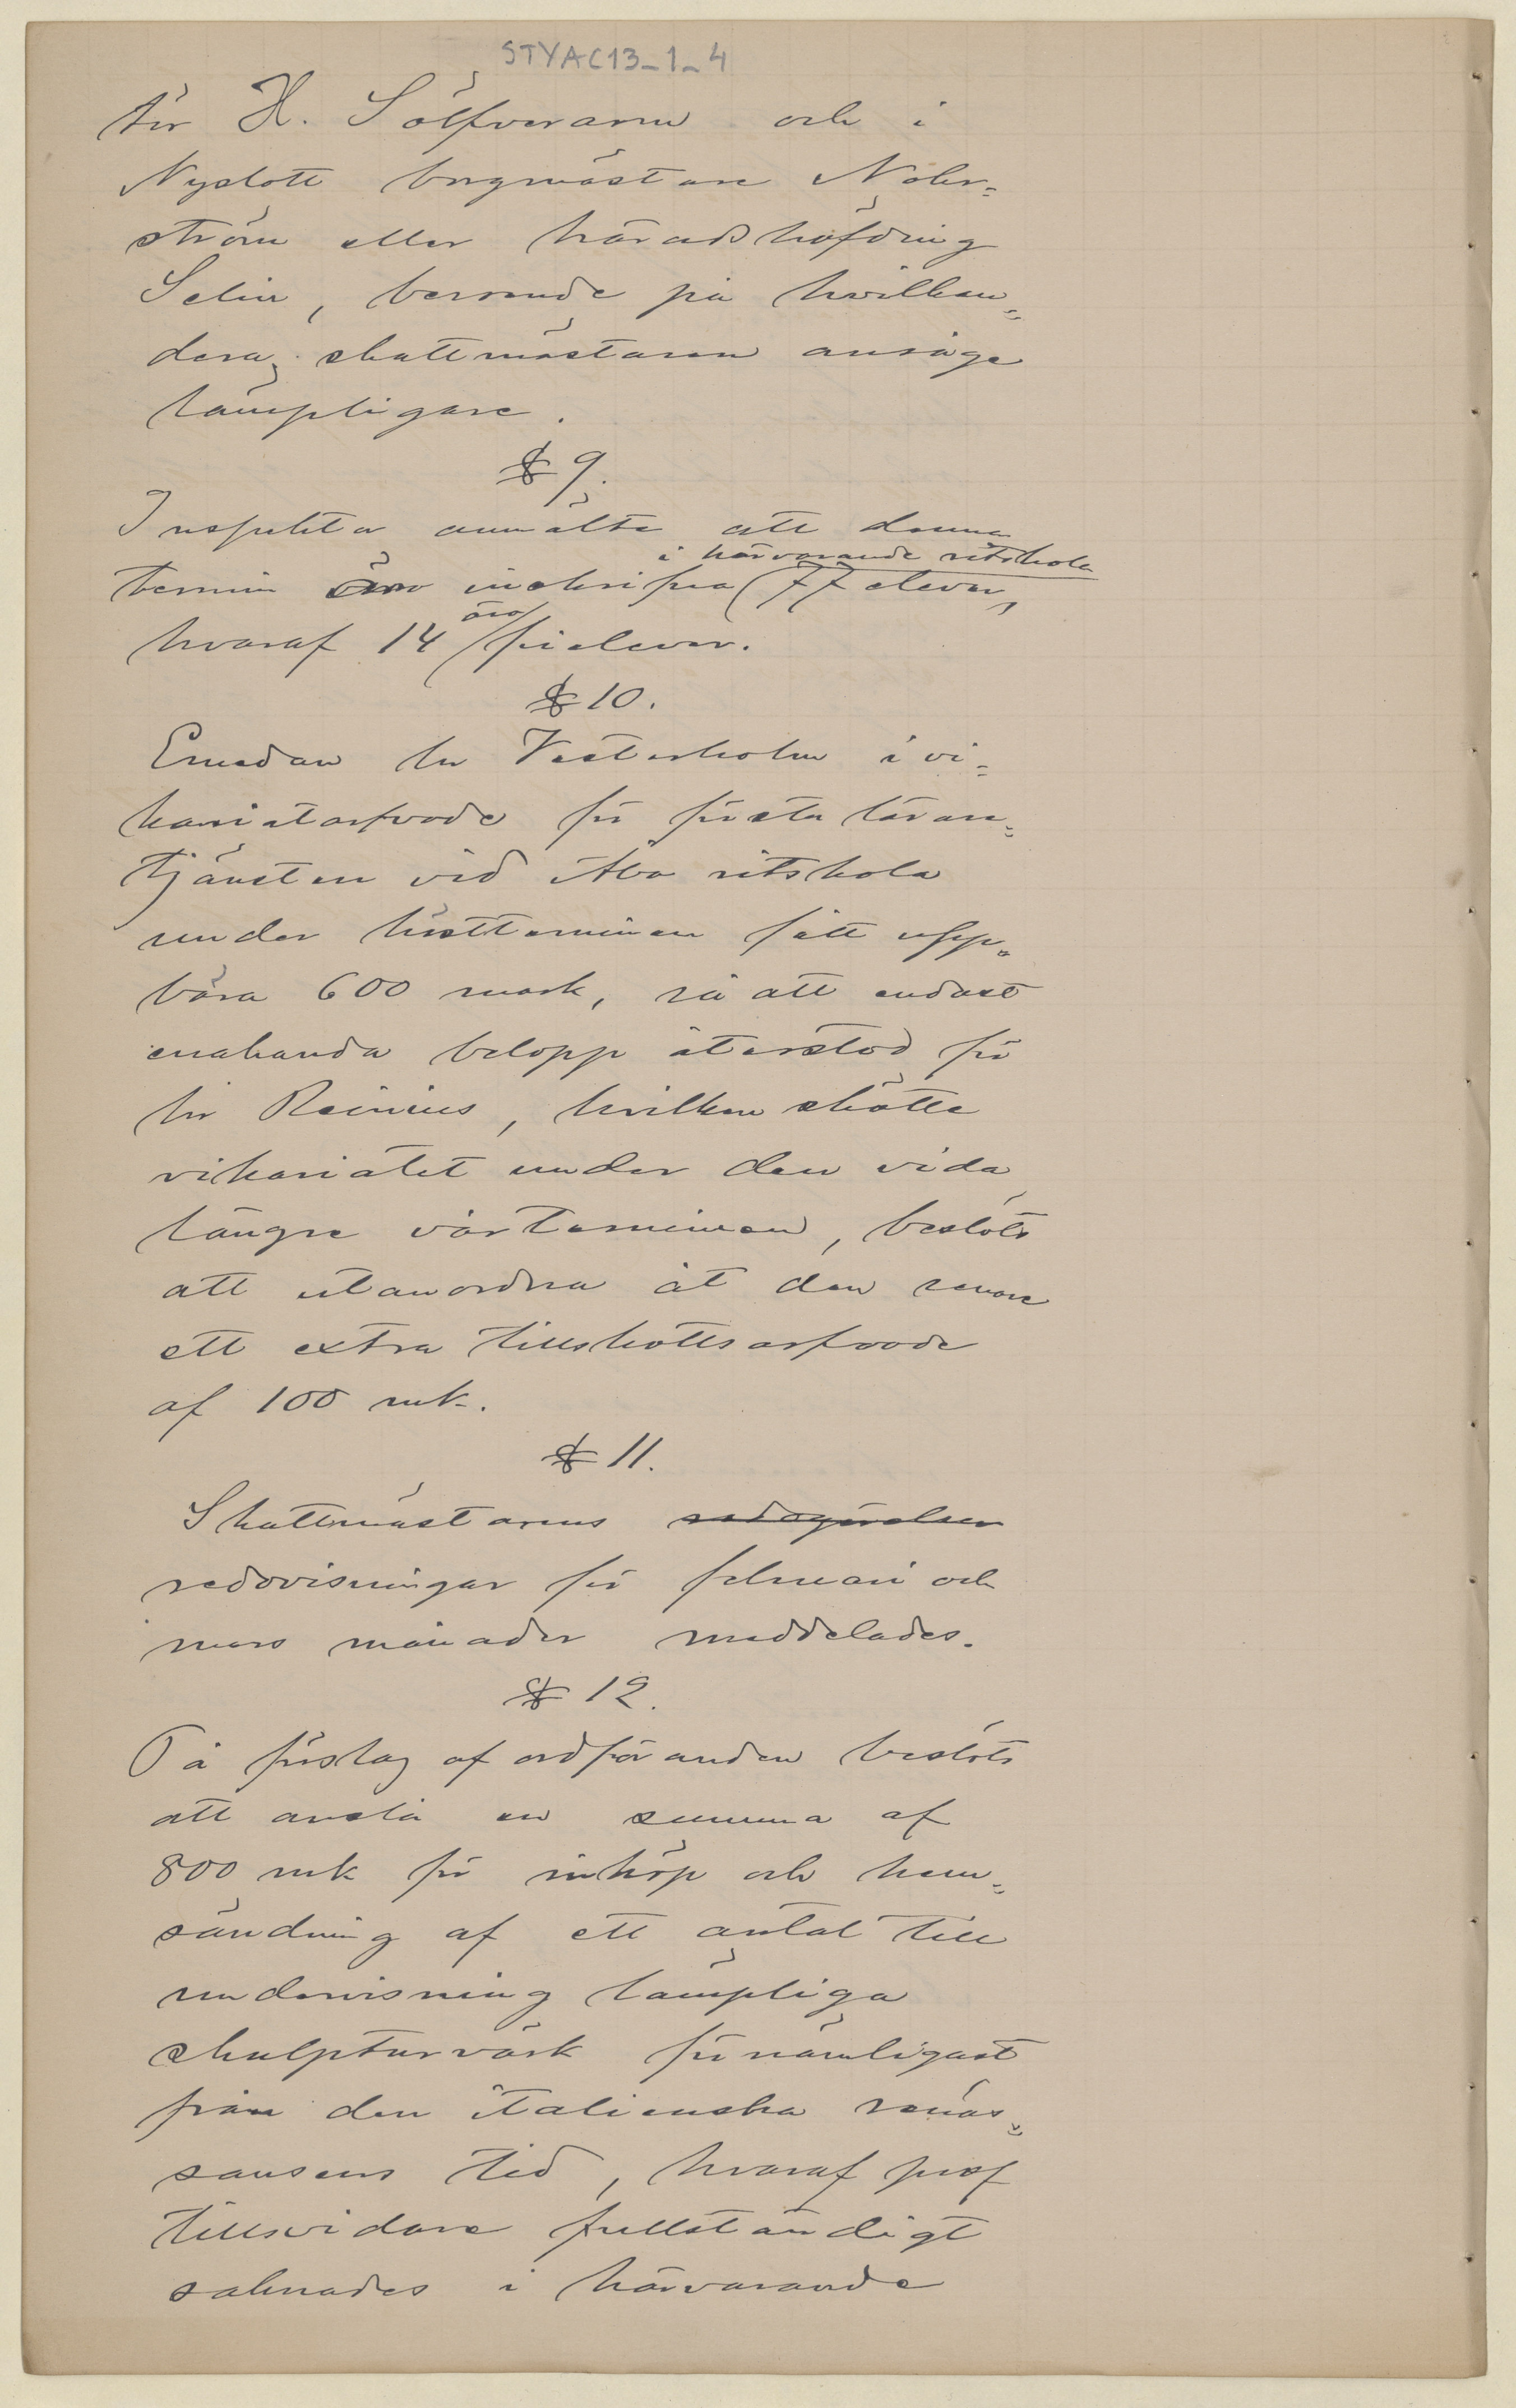 STYAC13_1_4
tör H. Sölfverarm och i
Nyslott borgmästare Nohr=
ström eller häradshöfding
Selin, beroende på hvilken=
dera skattmästaren ansåge
lämpligare.
§ 9.
Inspektor anmälte att denna
i härvarande ritskola
termin äro inskrifna 77 elever,
äro
hvaraf 14 frielever.
§ 10.
Emedan hr Vesterholm i vi=
kariatarfvode för första lärare=
tjänsten vid Åbo ritskola
under höstterminen fått upp=
bära 600 mark, så att endast
enahanda belopp återstod för
hr Reinius, hvilken skötte
vikariatet under den vida
längre vårterminen, beslöts
att utanordna åt den senare
ett extra tillskottsarfvode
af 100 mk.
§ 11.
Skattmästarens redogörelser
redovisningar för februari och
mars månader meddelades.
§ 12.
På förslag af ordföranden beslöts
att anslå en summa af
800 mk för inköp och hem=
sändning af ett antal till
undervisning lämpliga
skulpturvärk förnämligast
från den italienska renäs=
sansens tid, hvaraf prof
tillsvidare fullständigt
saknades i härvarande